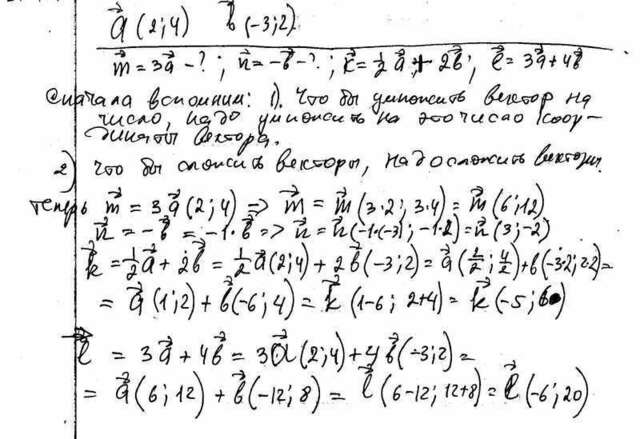 a⃗ (2; 4) b⃗ (-3; 2)
m⃗ = 3a⃗ - ?; n⃗ = -b⃗ - ?; k⃗ = ½ a⃗ + 2b⃗; l⃗ = 3a⃗ + 4b⃗
Сначала вспомним: 1). Что бы умножить вектор на
число, надо умножить на это число коор-
динаты вектора.
2) Что бы сложить векторы, надо сложить
теперь m⃗ = 3a⃗ (2; 4) => m⃗ = m⃗ (3·2; 3·4) = m⃗ (6; 12)
n⃗ = -b⃗ = -1·b⃗ => n⃗ = n⃗ (-1·(-3); -1·2) = n⃗ (3; -2)
k⃗ = ½ a⃗ + 2b⃗ = ½ a⃗ (2; 4) + 2b⃗ (-3; 2) = a⃗ (2/2; 4/2) + b (-3·2; 2·2) =
= a⃗ (1; 2) + b⃗ (-6; 4) = k⃗ (1-6; 2+4) = k⃗ (-5; 6)
l⃗ = 3a⃗ + 4b⃗ = 3a⃗ (2; 4) + 4b⃗ (-3; 2) =
= a⃗ (6; 12) + b⃗ (-12; 8) = l⃗ (6-12; 12+8) = l⃗ (-6; 20)